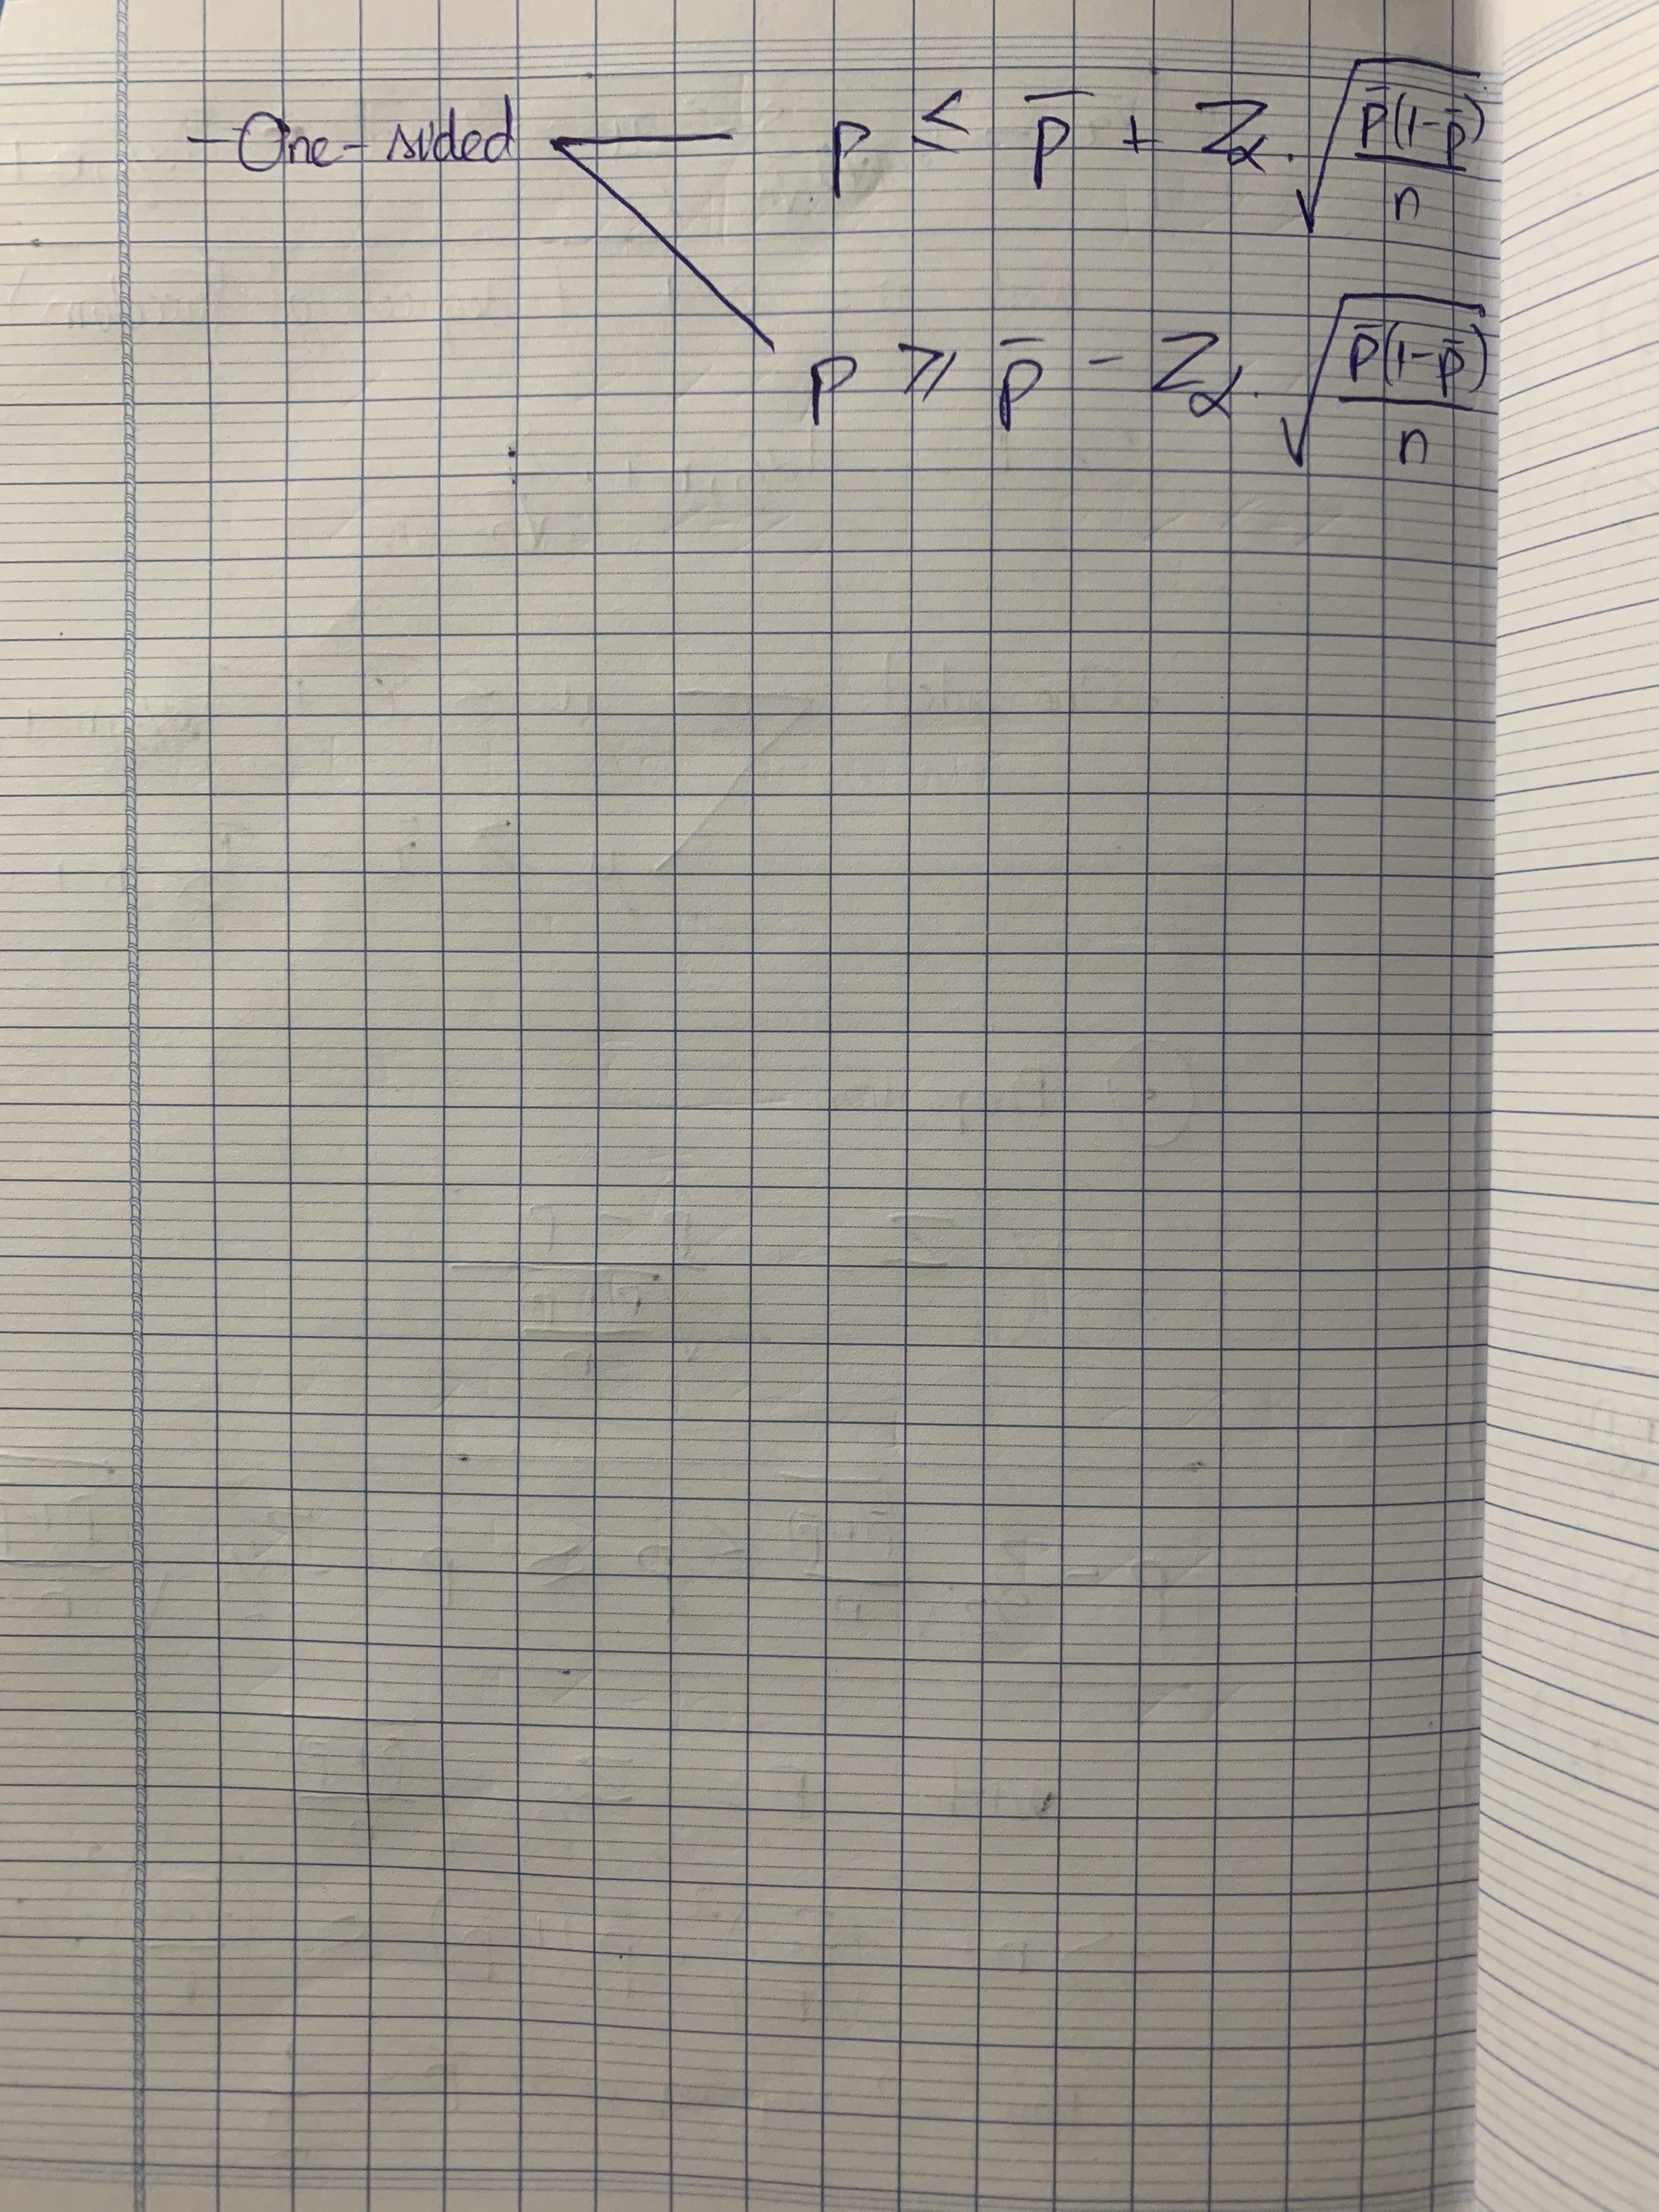 - One-sided p ≤ p̄ + Zα . √(p̄(1-p̄)/n)
p ≥ p̄ - Zα . √(p̄(1-p̄)/n)